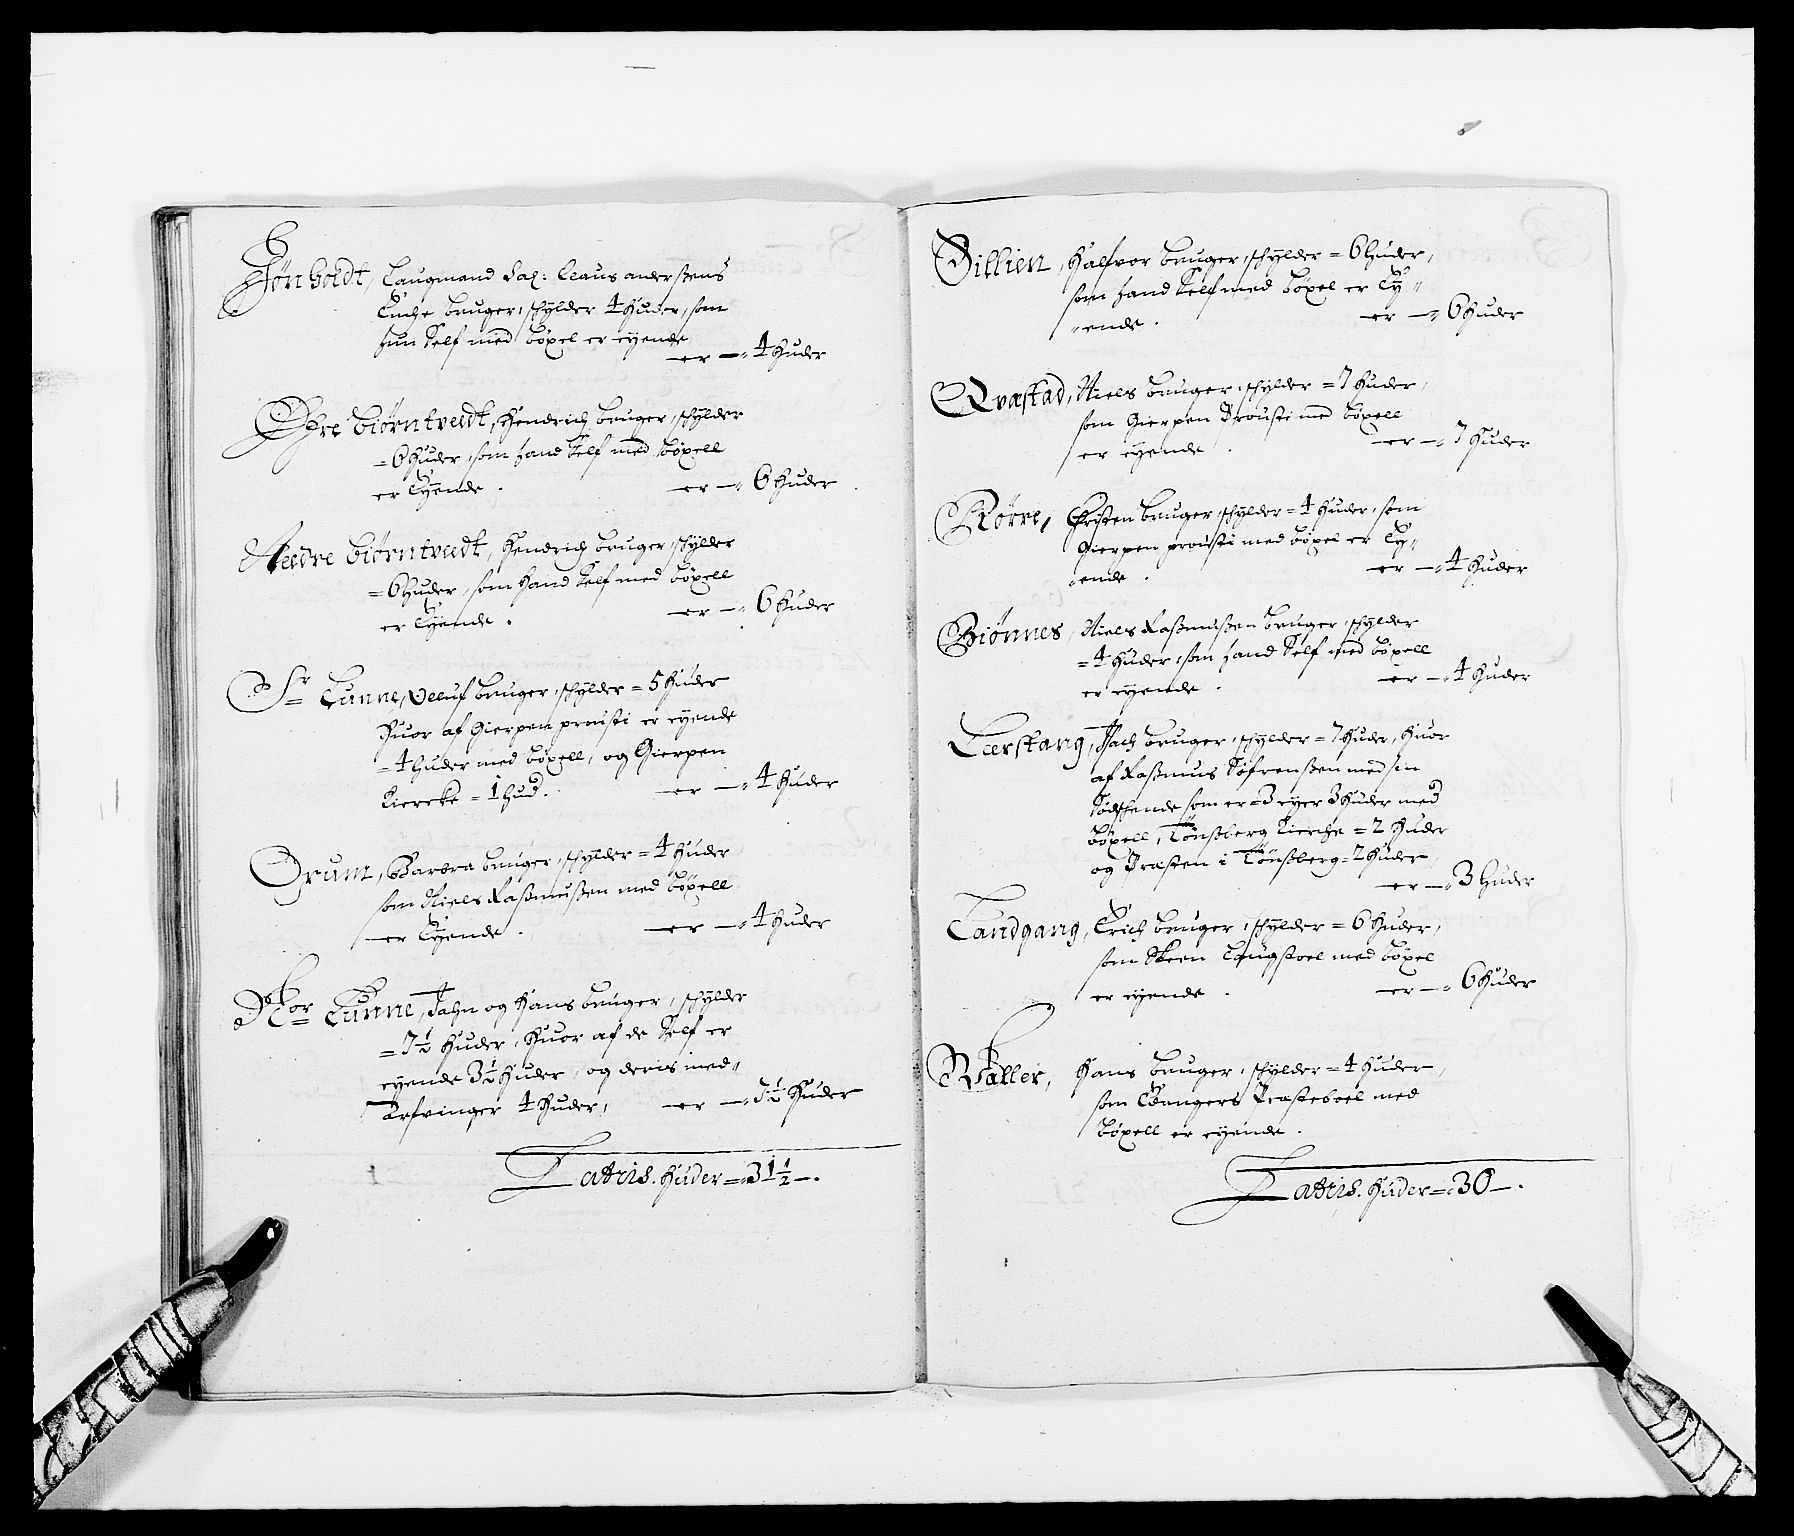 Jønholdt, Laugmand Sal: Claus anderßens
Enche bruger, schylder 4 huder, som
hun Self med böxel er eyende
er — 4 huder
Øfre Biørntvedt, Hendrich bruger, schylder
= 6 huder, som hand Self med böxell
er Eyende . er — 6 huder
Needre Biørntvedt, Hendrich bruger, schylder
= 6 huder, som hand Self med böxell
er Eyende . er — 6 huder
Sr Lunne, Oeluf bruger, schylder = 5 huder
huor af Gierpen prousti er eyende
= 4 huder med böxell, og Gierpen
Kiercke = 1 hud. er — 4 huder
Grum, Barbra bruger, schylder = 4 huder
som Niels Raßmußen med böxell
er Eyende . er — 4 huder
Nor Lunne, Jahn og Hans bruger, schylder
= 7½ huder, huor af de Self er
eyende 3½ huder, og deris med„
Arfvinger 4 huder, er — 7½ huder
Lateris. huder = 31½ — .
Gillien, Halfvor bruger, schylder = 6 huder,
som hand Self med böxel er Ey„
„ende . er — 6 huder
Qvæstad, Niels bruger, schylder = 7 huder,
som Gierpen Prousti med böxell
er eyende . er — 7 huder
Rørre, Christen bruger, schylder = 4 huder, som
Gierpen prousti med böxel er Ey„
„ende . er — 4 huder
Biønnes, Niels Raßmußen bruger, schylder
= 4 huder, som hand Self med böxell
er eyende . er — 4 huder
Lerstang, Jach bruger, schylder = 7 huder, huor
af Raßmus Söfrenßen med sin
Södschende som er = 3 eyer 3 huder med
böxell, Tönßberg Kierche = 2 huder
og Præsten i Tönßberg = 2 huder,
er — 3 huder
Landgang, Erich bruger, schylder = 6 huder,
som Skeen Laugstoel med böxel
er eyende . er — 6 huder
Valler, Hans bruger, schylder = 4 huder,
som Edangers Præsteboel med
böxell er eyende .
Lateris. huder = 30 — .